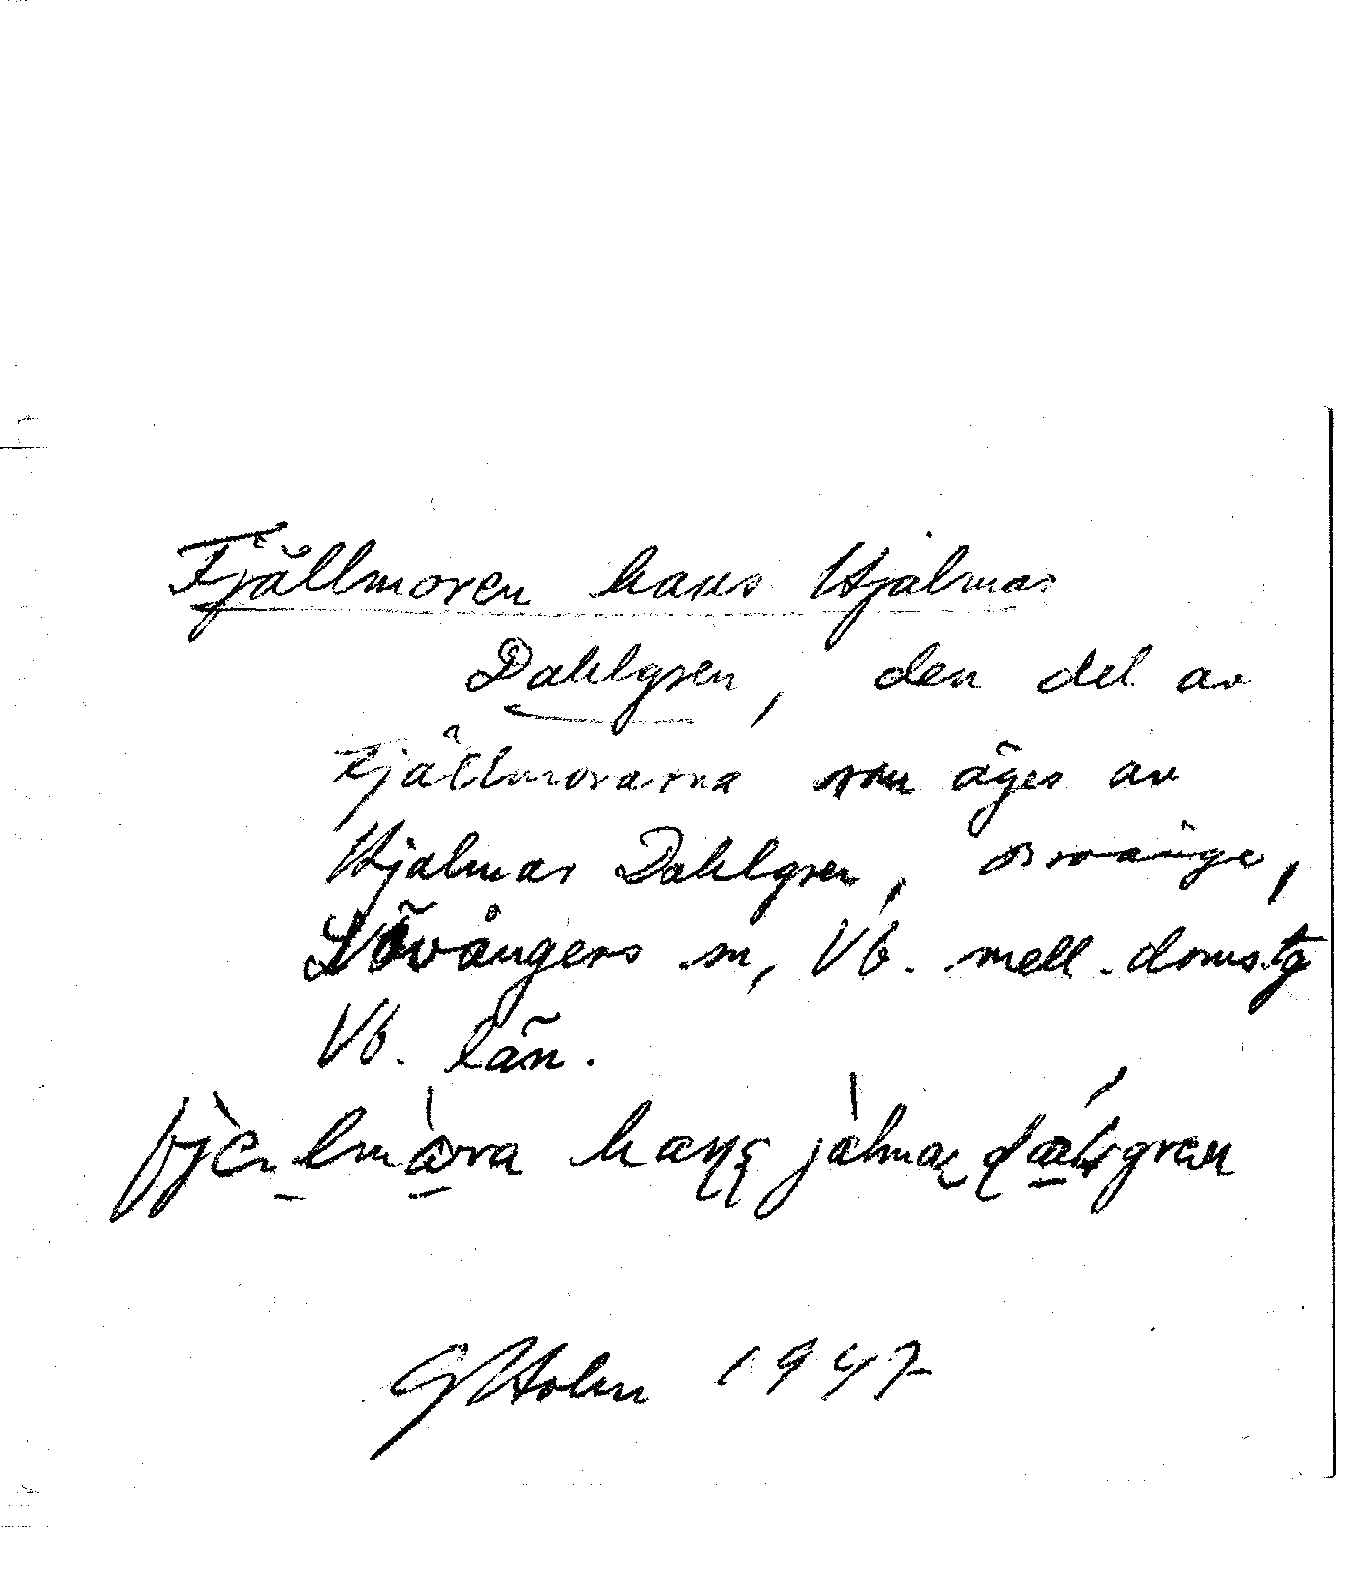 Fjällmoren hans Hjalmar
Dahlgren, den del av
Fjällmorarna som äges av
Hjalmar Dahlgren, Broänge,
Lövångers sn, Vb. mell. domstg
Vb. län.
hans
GHolm 1947